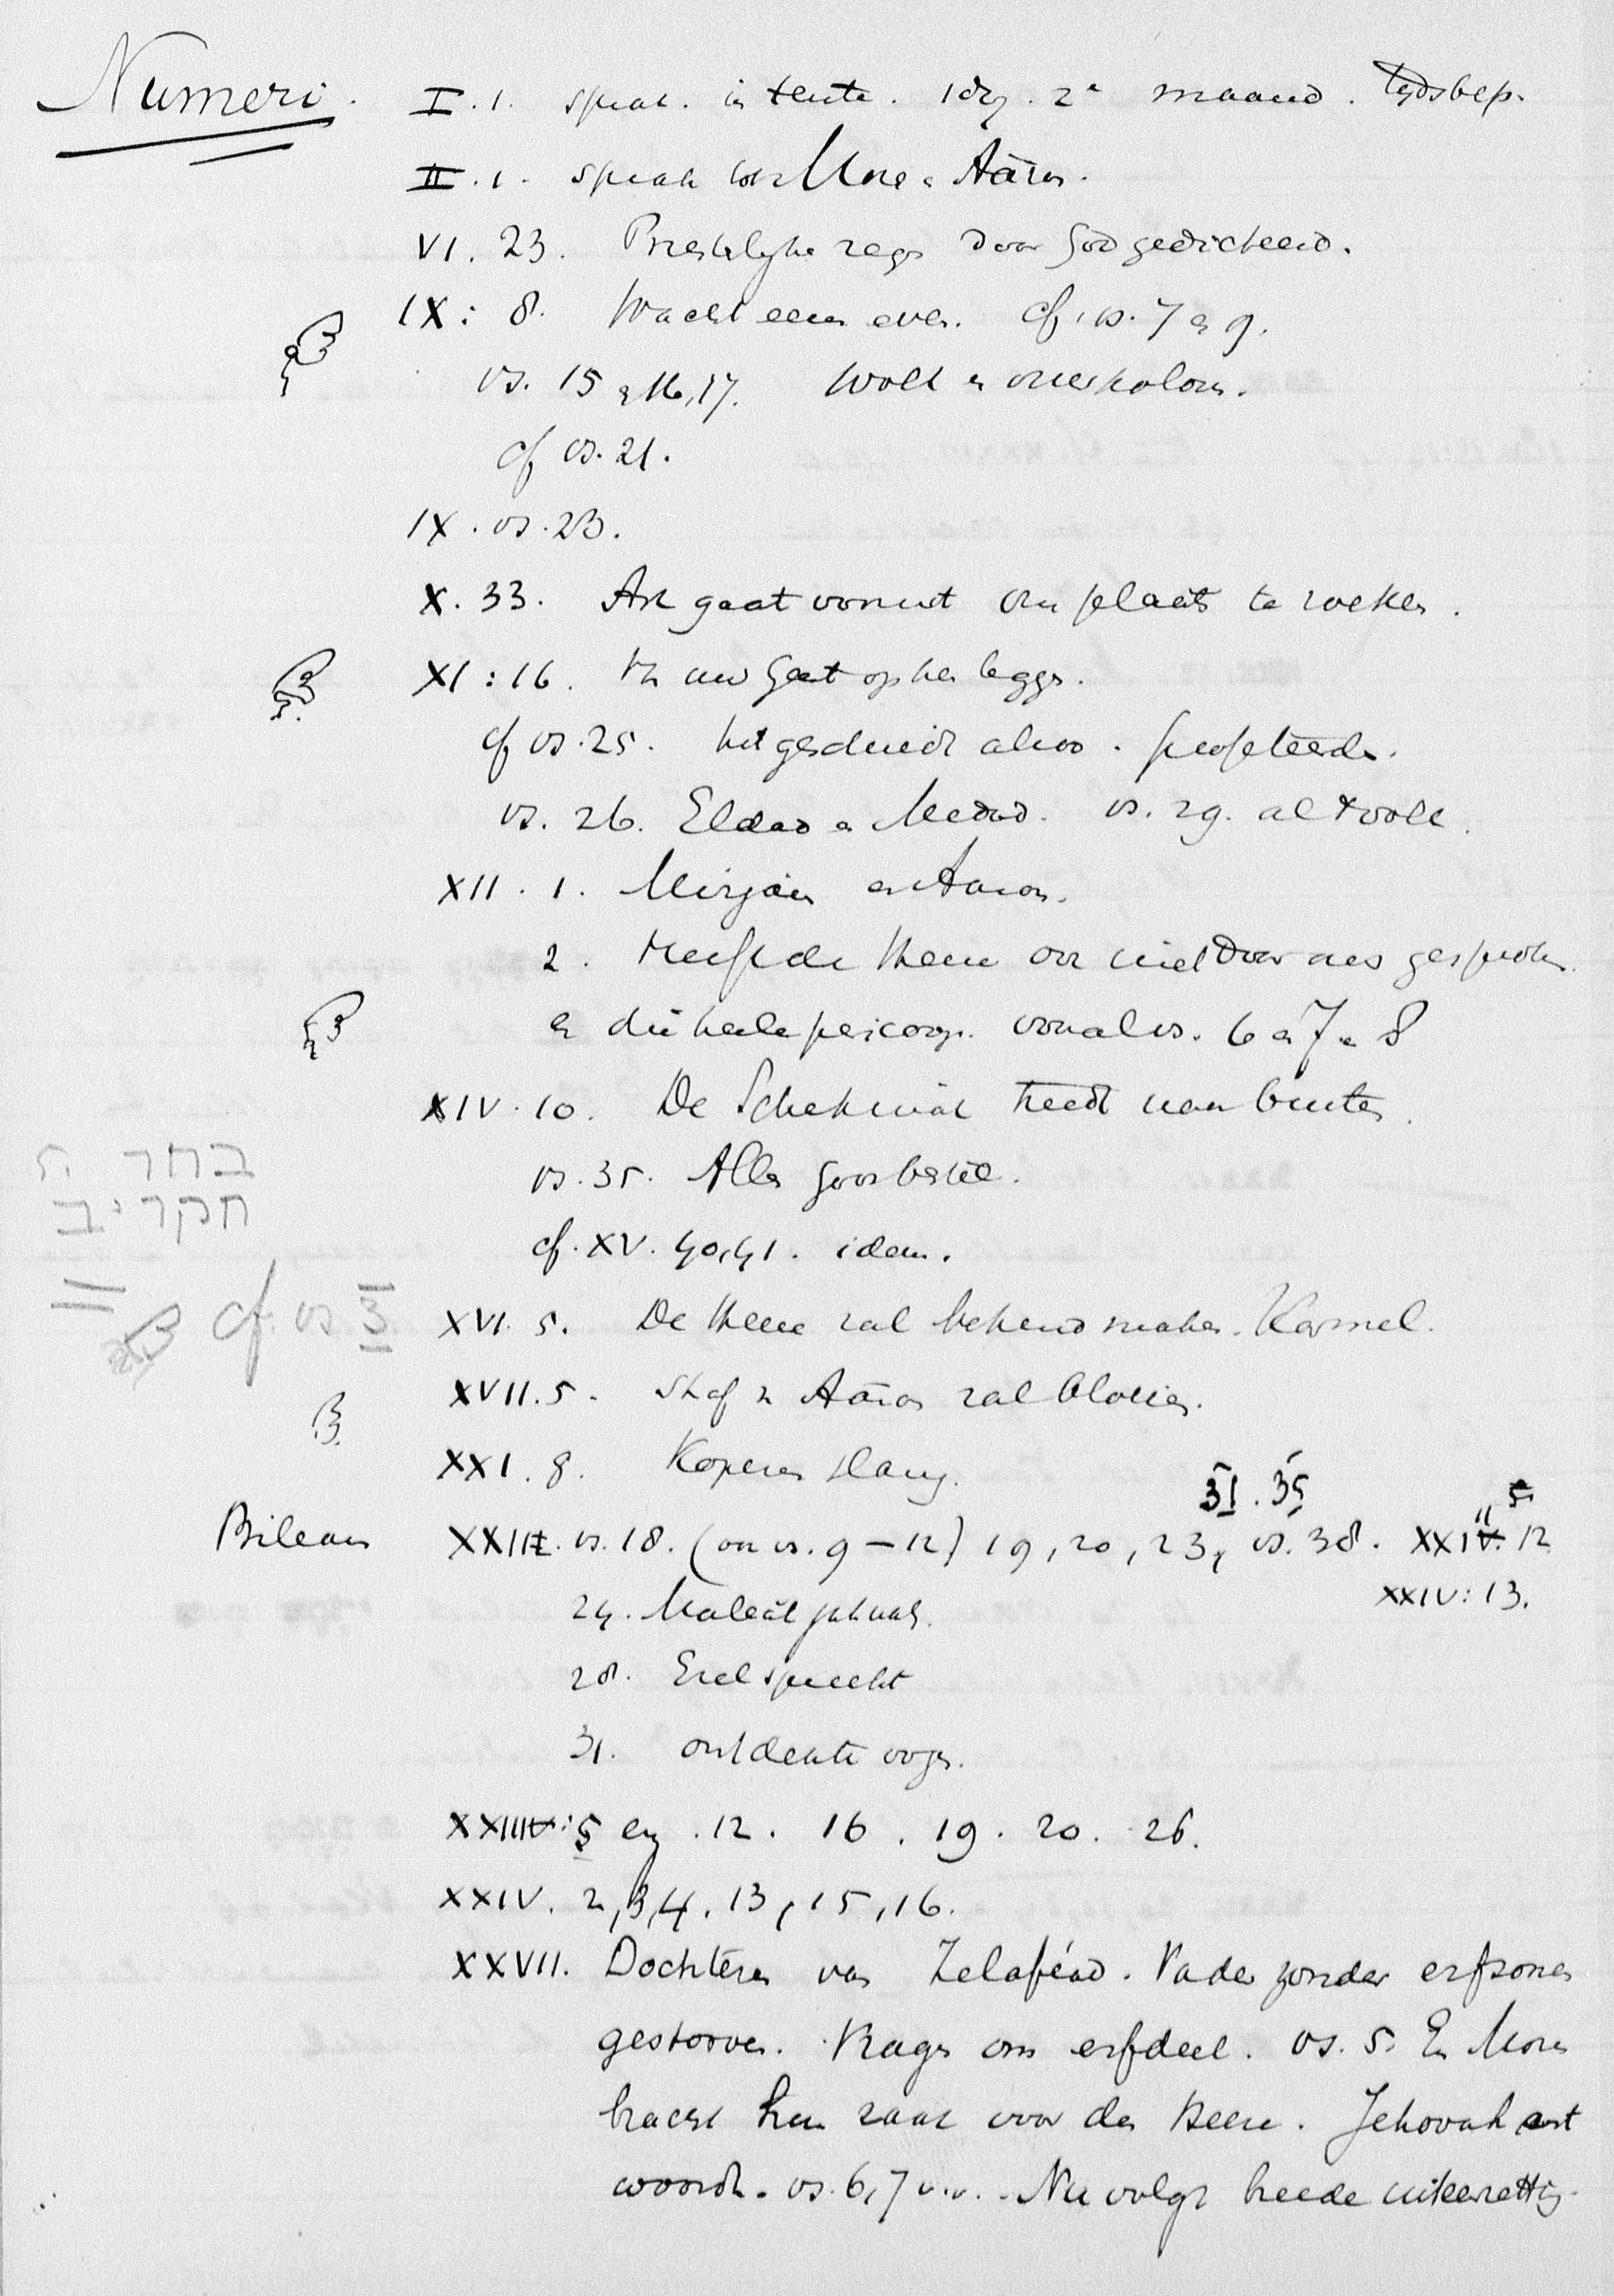 Numeri.
I. 1. sprak. in tente. 1 dag. 2e maand. tydsbep.
II. 1. sprak tot Mose en Aäron.
VI. 23. Priesterlyke zegen door God gedicteerd.
IX: 8. Wacht eens even. cf. vs. 7 en 9.
vs. 15 en 16, 17. Wolk en vuurkolom.
cf vs. 21.
IX. vs. 23.
X. 33. Ark gaat vooruit om plaats te zoeken.
XI: 16. uw Geest op hen leggen.
cf vs. 25. het geschiedt alzoo. profeteerden.
vs. 26. Eldad en Medad. vs. 29. al t volk.
XII. 1. Mirjam en Aaron.
2. Heeft de Heere ook niet door ons gesproken.
en die heele pericoop. vooral vs. 6 en 7 en 8
XIV. 10. De Schekinah treedt naar buiten.
בחר ה
vs. 35. Alles Godsbestel.
חקריב
cf. XV. 40, 41. idem.
cf. vs 3
XVI. 5. De Heere zal bekend maken. Karmel.
XVII. 5. Staf v Aäron zal bloeien.
XXI. 8. Koperen slang.
31. 35
5
Bileam
XXII. vs. 18. (ook vs. 9-12) 19, 20, 23, vs. 38. XXIII 12
XXIV: 13.
24. Maleach Jahwah.
28. Ezel spreekt
31. ontdekte oogen.
XXIII: 5 en 12. 16. 19. 20. 26.
XXIV. 2, 3, 4, 13, 15, 16.
XXVII. Dochteren van Zelaféad. Vader zonder erfzonen
gestorven. Vragen om erfdeel. vs. 5. En Mozes
bracht hun zaak voor den Heere. Jehovah ant
woordt. vs. 6, 7 v.v. Nu volgt breede uiteenzetting.